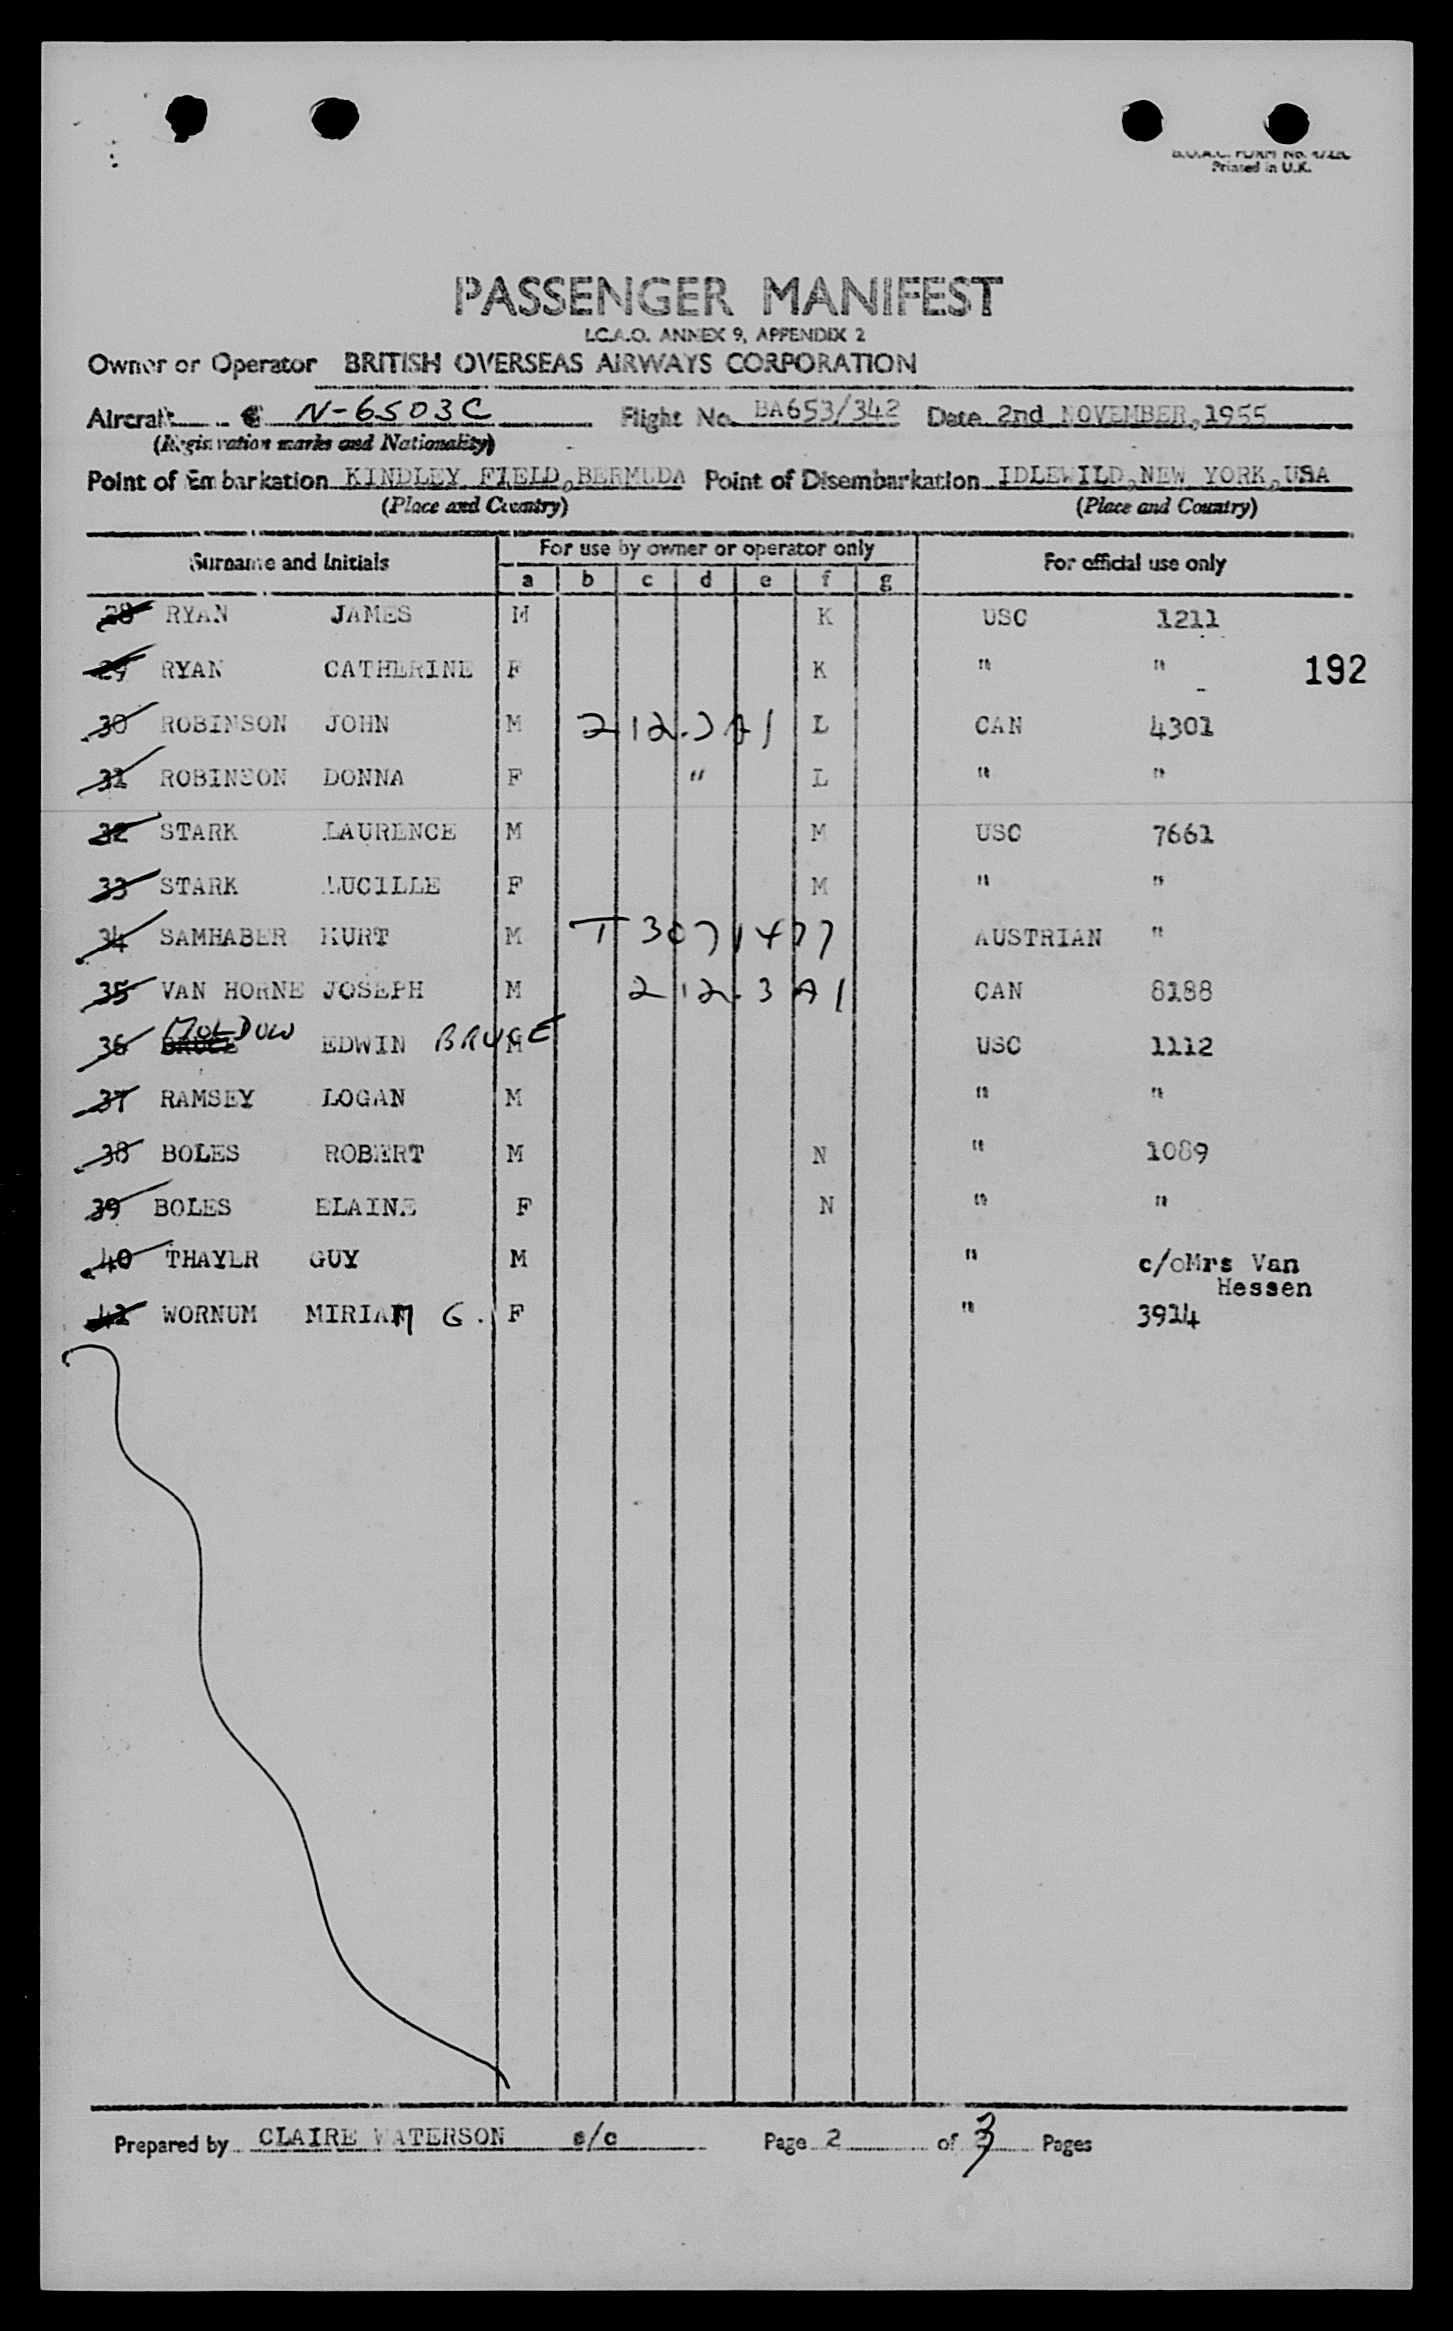 B.O.A.C. FORM No.
Printed in U.K.
PASSENGER MANIFEST
I.C.A.O. ANNEX 9, APPENDIX 2
Owner or Operator BRITISH OVERSEAS AIRWAYS CORPORATION
Aircraft N-6503C Flight No. BA653/342 Date 2nd NOVEMBER, 1955
(Registration marks and Nationality)
Point of Embarkation KINDLEY FIELD, BERMUDA Point of Disembarkation IDLEWILD, NEW YORK, USA
(Place and Country) (Place and Country)
Surname and Initials For use by owner or operator only For official use only
a b c d e f g
28 RYAN JAMES M K USC 1211
29 RYAN CATHERINE F K " " 192
30 ROBINSON JOHN M L CAN 4301
31 ROBINSON DONNA F " L " "
32 STARK LAURENCE M M USC 7661
33 STARK LUCILLE F M " "
34 SAMHABER KURT M T3071477 AUSTRIAN "
35 VAN HORNE JOSEPH M 212.3A1 CAN 8188
36 BRUCE MOLDOW EDWIN BRUCE M USC 1112
37 RAMSEY LOGAN M " "
38 BOLES ROBERT M N " 1089
39 BOLES ELAINE F N " "
40 THAYER GUY M " c/oMrs Van
Hessen
41 WORNUM MIRIAM G. F " 3914
Prepared by CLAIRE WATERSON s/c Page 2 of 3 Pages